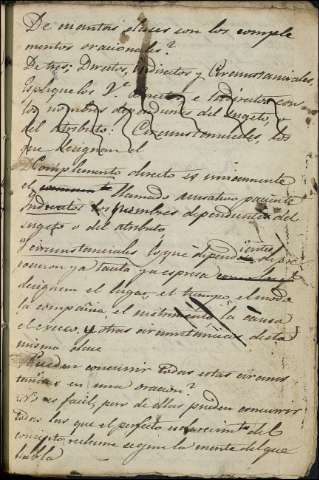 De cuantas clases son los comple
mentos oracionales?
De tres; Directos, Indirectos y Circunstanciales,
Espliquelos V. Directos e Indirectos son
los nombres dependientes del sugeto,
del atributo. Circunstanciales, los
que designen el
Complemento directo es unicamente
el llamado acusativo paciente
Indirectos los nombres dependientes del
sugeto o del atributo
circunstanciales los que dependientes
ya tacita ya espresa
designen el lugar, el tiempo, el modo
la compañia, el instrumento, la causa
el precio, y otras circunstancias de la
misma clase
Pueden concurrir todas estas circuns
tancias en una oracion?
No es facil, pero de ellas pueden concurrir
todas las que el perfecto esclarecimto del
concepto reclame segun la mente del que
habla